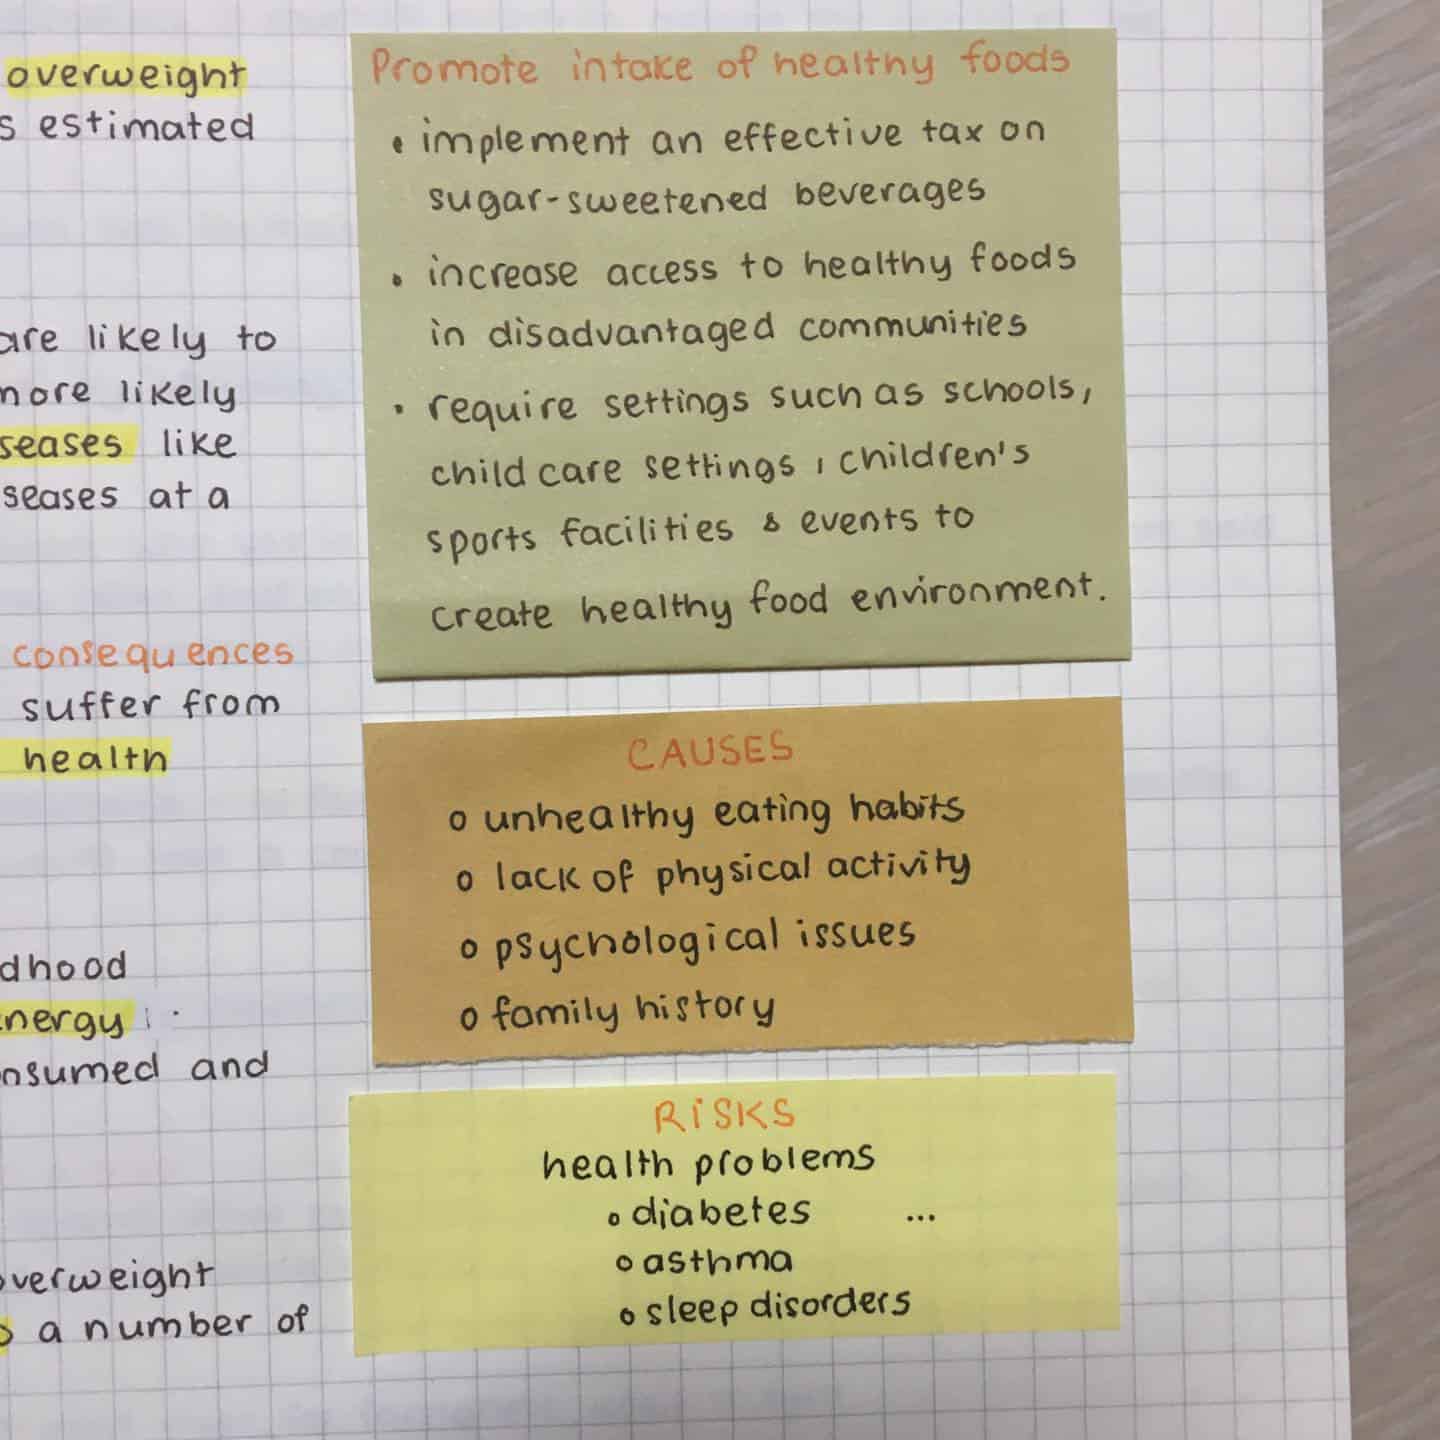 overweight
s estimated
are likely to
more likely
seases like
seases at a
consequences
suffer from
health
dhood
nergy
nsumed and
overweight
a number of
Promote intake of healthy foods
• implement an effective tax on
sugar-sweetened beverages
• increase access to healthy foods
in disadvantaged communities
• require settings such as schools,
child care settings, children's
sports facilities & events to
create healthy food environment.
CAUSES
o unhealthy eating habits
o lack of physical activity
o psychological issues
o family history
RiSKS
health problems
o diabetes ...
o asthma
o sleep disorders